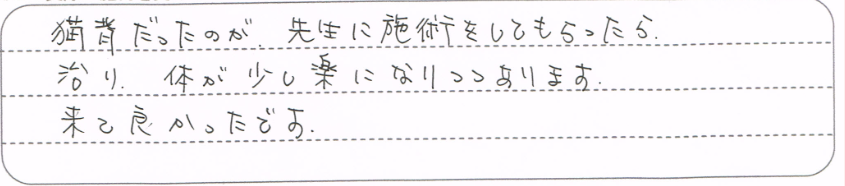 猫背だったのが、先生に施術をしてもらったら、
治り、体が少し楽になりつつあります。
来て良かったです。